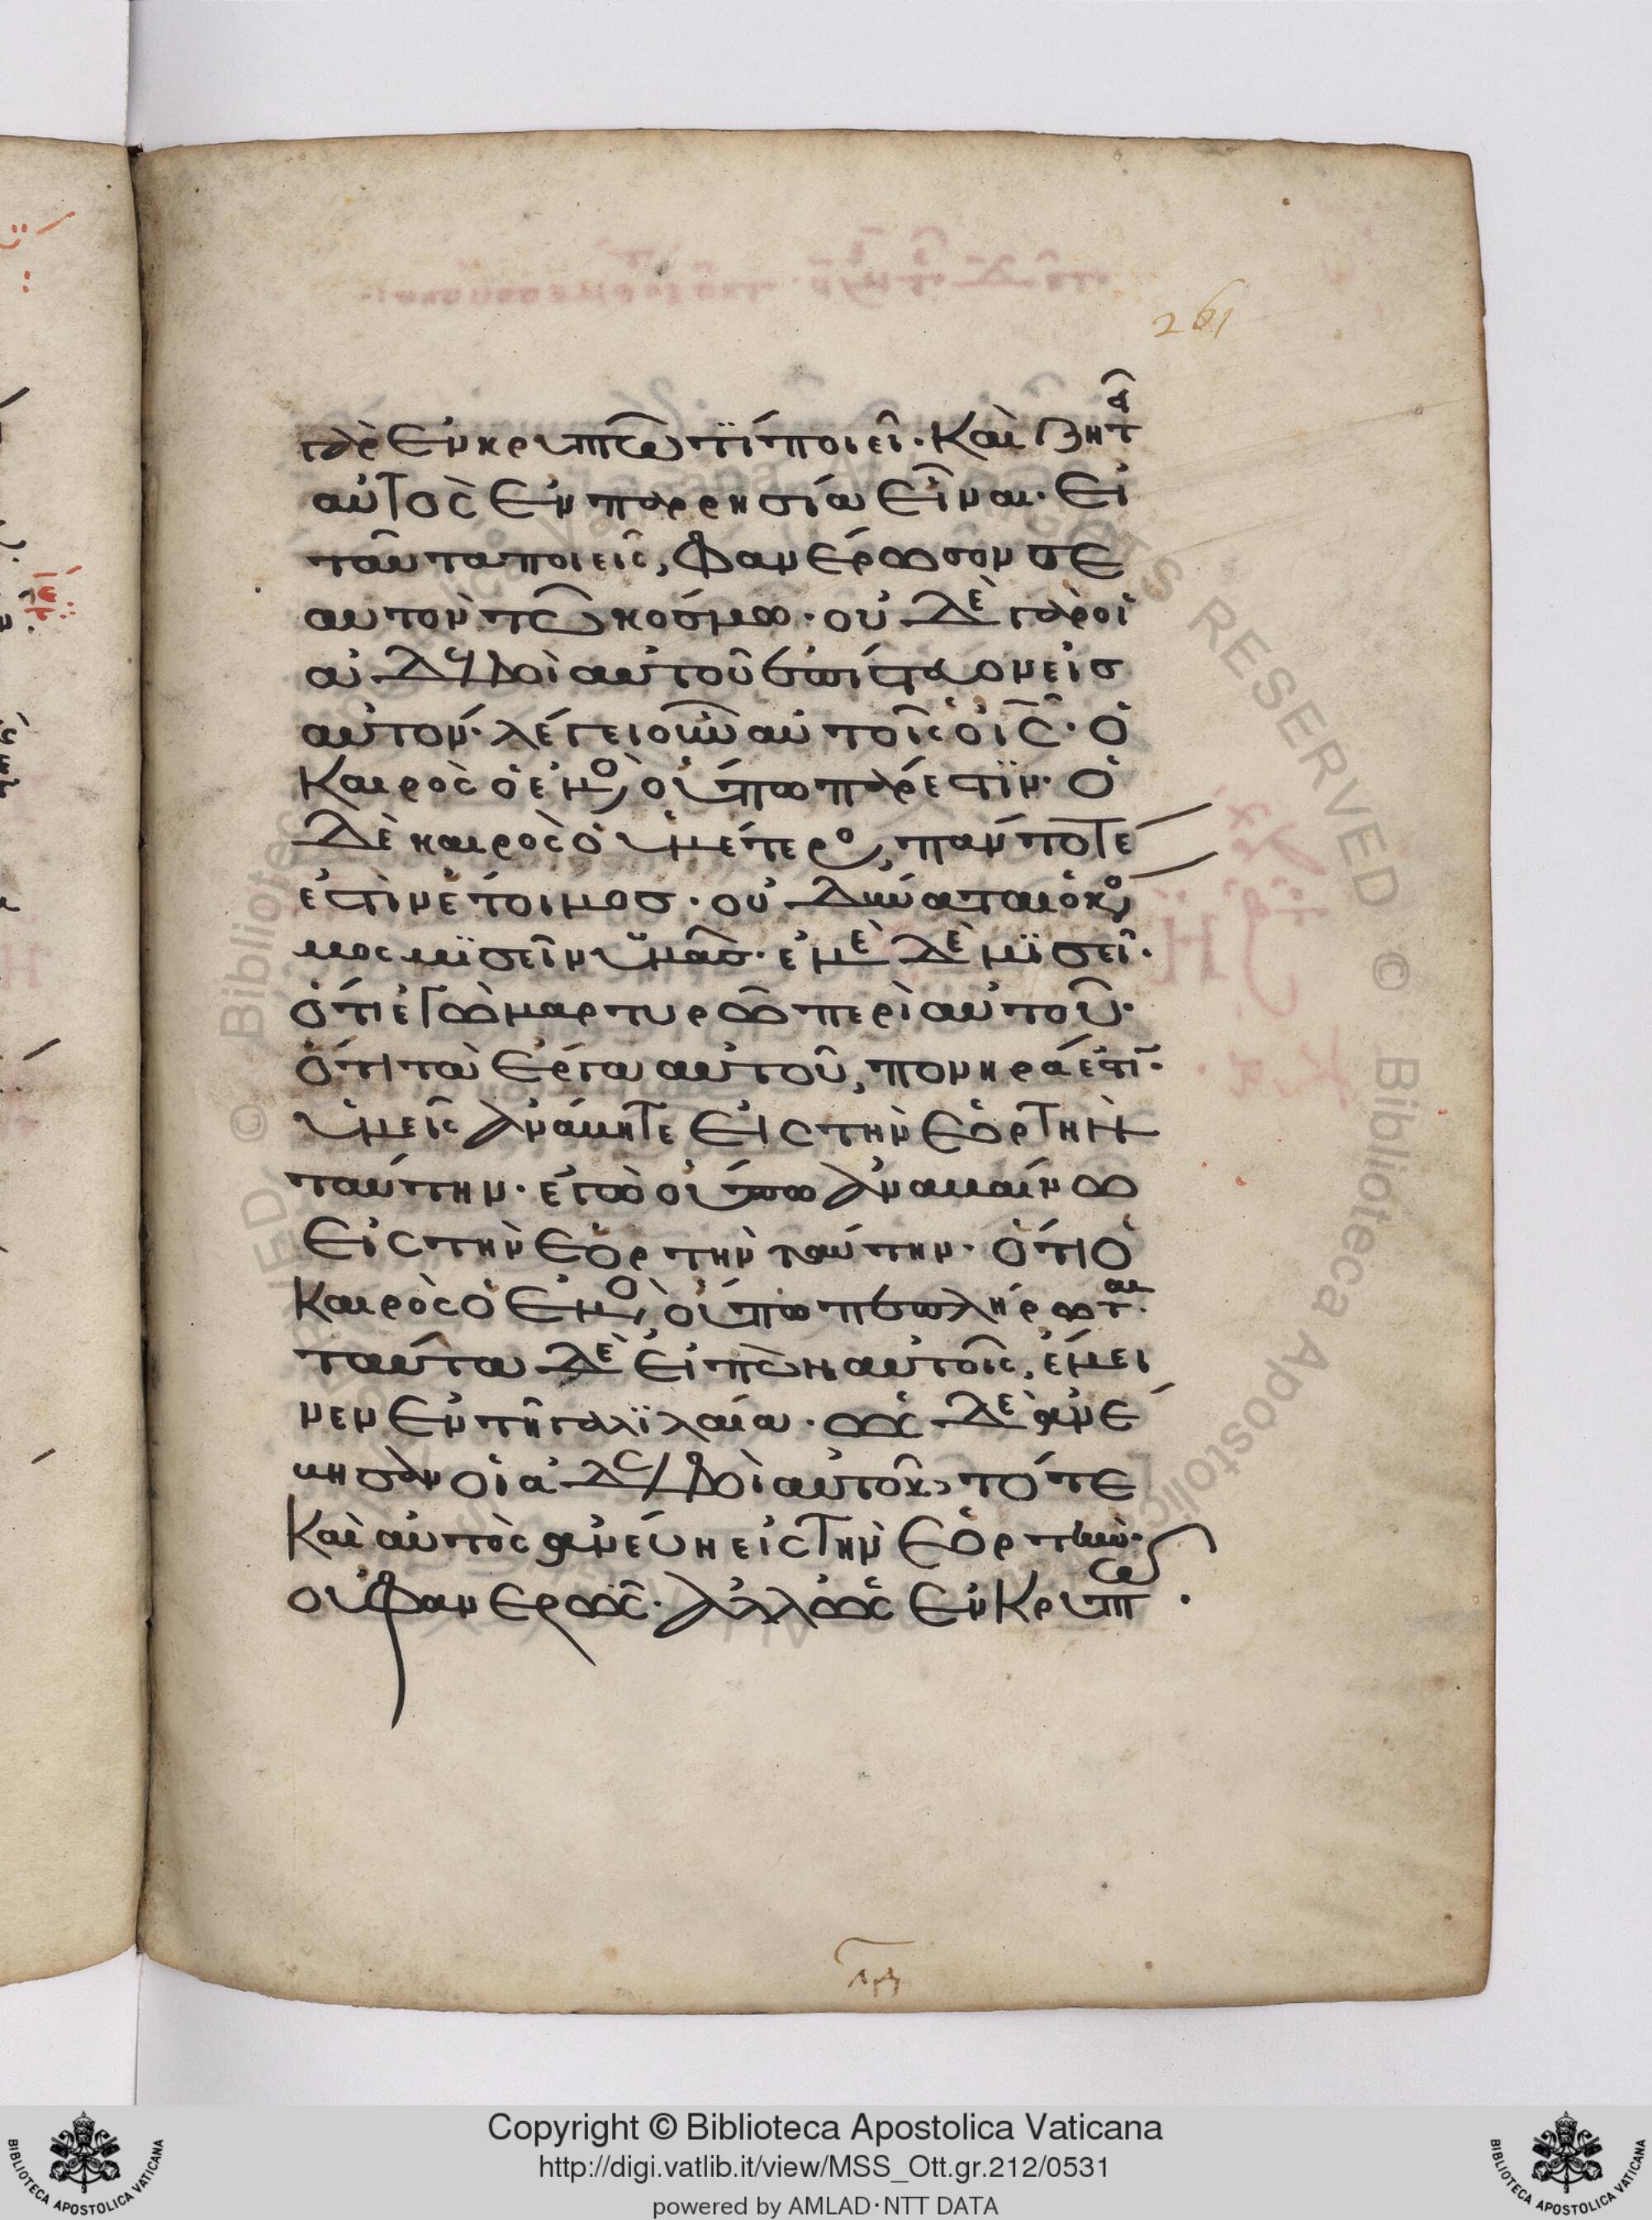 261
γὰρ ἐν κρυπτῶ τϊ ποιεῖ. καὶ ζητ
αὐτὸς ἐν παρρησία εἶναι. εἰ
ταῦτα ποιεῖς, φανέρωσον σε
αυτὸν τῶ κόσμω. οὐδὲ γὰρ οἱ
ἀδελφοὶ αὐτοῦ ἐπίστευον εἰσ
αὐτόν. λέγει οὖν αὐτοῖς ὁ ις̅. ὁ
καιρὸς ὁ ἐμὸς οὔπω πάρεστϊν. ὁ
δὲ καιρὸς ὁ ὑμέτερος, πάντοτέ
ἐστὶν ἕτοιμοσ. οὐ δύναται ὁ κόσ
μος μϊσεῖν ὑμᾶσ. ἐμὲ δὲ μϊσεῖ.
ὅτι ἐγὼ μαρτυρῶ περὶ αὐτοῦ.
ὅτι τὰ ἔργα αὐτοῦ, πονηρά ἐστι.
ὑμεῖς ἀνάβητε εἰς τὴν ἑορτὴν
ταύτην. ἐγὼ οὔπω ἀναβαίνω
εἰς τὴν ἑορτὴν ταύτην. ὅτι ὁ
καιρὸς ὁ ἐμὸς, οὔπω πεπλήρωται.
ταῦτα δὲ εἰπὼν αὐτοῖς, ἔμει
νεν ἐν τῆ γαλϊλαία. ὡς δὲ ἀνέ
βησαν οἱ ἀδελφοὶ αὐτοῦ, τότε
καὶ αὐτὸς ἀνέβη εἰς τὴν ἑορτὴν.
οὐ φανερῶς. ἀλλ' ὡς ἐν κρυπτῶ.
Copyright © Biblioteca Apostolica Vaticana
http://digi.vatlib.it/view/MSS_Ott.gr.212/0531
powered by AMLAD·NTT DATA
BIBLIOTECA APOSTOLICA VATICANA
BIBLIOTECA APOSTOLICA VATICANA